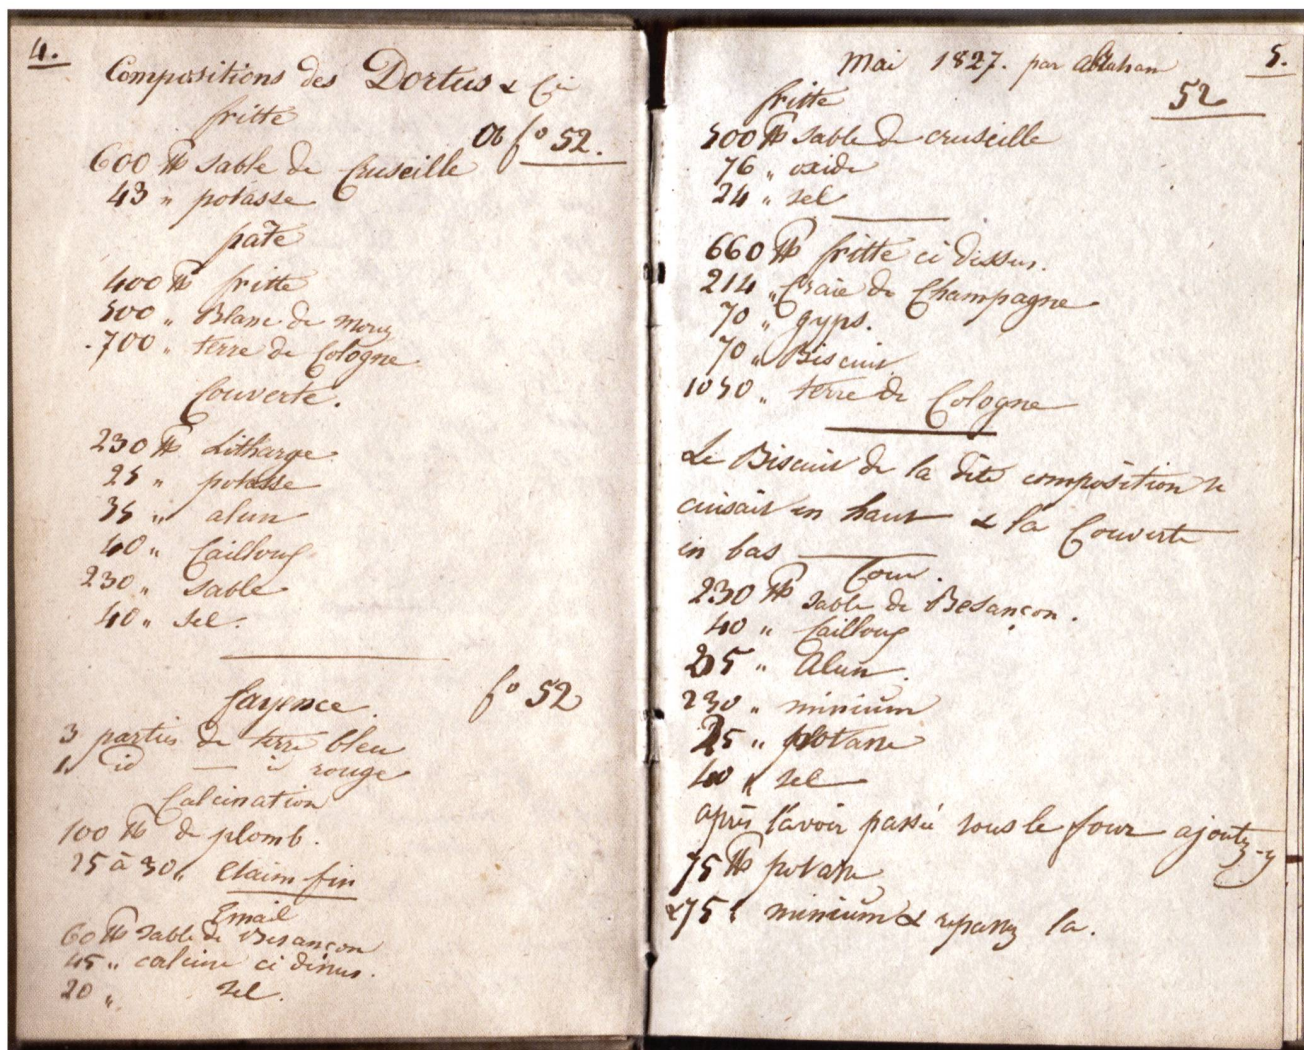 4.
Compositions des Dortus & Cie
fritte
Ob fo 52.
600 ℔ sable de Cruseille
43 " potasse
pâte
400 ℔ fritte
500 " Blanc de Morez
700 " terre de Cologne
Couverte.
230 ℔ Litharge
25 " potasse
35 " alun
40 " Cailloux
230 " sable
40 " sel.
fayence.
fo 52
3 parties de terre bleu
1 id — id rouge
Calcination
100 ℔ de plomb.
25 à 30 " Etaim fin
Email
60 ℔ sable de Besançon
45 " calcine ci dessus.
20 " sel.
Mai 1827. par Abraham
5.
52
fritte
500 ℔ sable de cruseille
76 " oxide
24 " sel
660 ℔ fritte ci dessus.
214 " Craie de Champagne
70 " gyps.
70 " Biscuit
1050 " terre de Cologne
Le Biscuit de la dite composition se
cuisait en haut & la Couverte
en bas
Couv.
230 ℔ sable de Besançon.
40 " Cailloux
25 " Alun.
230 " minium
25 " potasse
40 " sel
après l'avoir passé sous le four ajoutez-y
75 ℔ potasse
& 75 " minium & repassez la.